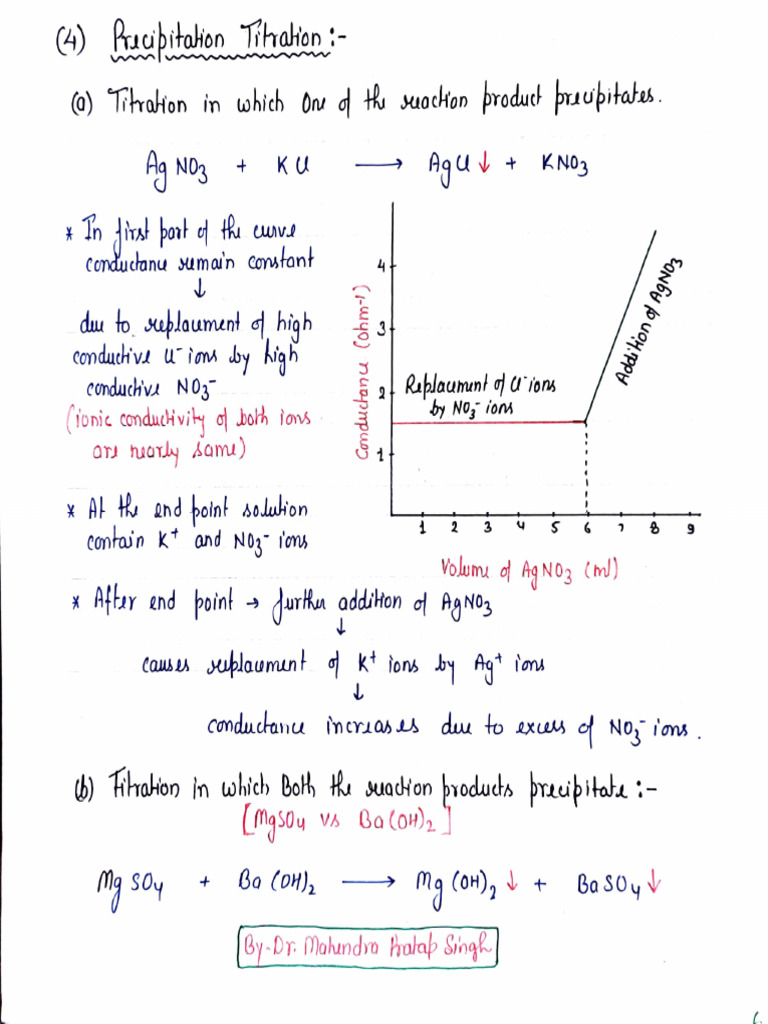 (4) Precipitation Titration :-
(a) Titration in which One of the reaction product precipitates.
AgNO3 + KCl ⟶ AgCl ↓ + KNO3
* In first part of the curve
conductance remain constant
↓
due to replacement of high
conductive Cl⁻ ions by high
conductive NO3⁻
(ionic conductivity of both ions
are nearly same)
Conductance (ohm-1)
4
3
2
1
Replacement of Cl⁻ ions
by NO3⁻ ions
Addition of AgNO3
1 2 3 4 5 6 7 8 9
Volume of AgNO3 (ml)
* At the end point solution
contain K⁺ and NO3⁻ ions
* After end point → further addition of AgNO3
↓
causes replacement of K⁺ ions by Ag⁺ ions
↓
conductance increases due to excess of NO3⁻ ions.
(b) Titration in which Both the reaction products precipitate :-
[MgSO4 vs Ba(OH)2]
MgSO4 + Ba(OH)2 ⟶ Mg(OH)2 ↓ + BaSO4 ↓
By-Dr. Mahendra Pratap Singh